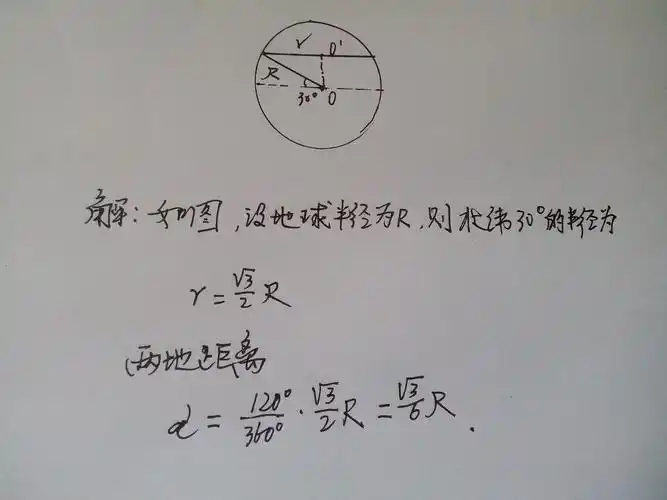 r O'
R
30° O
解:如图,设地球半径为R,则北纬30°的半径为
r = √3/2 R
两地距离
d = 120°/360° · √3/2 R = √3/6 R.